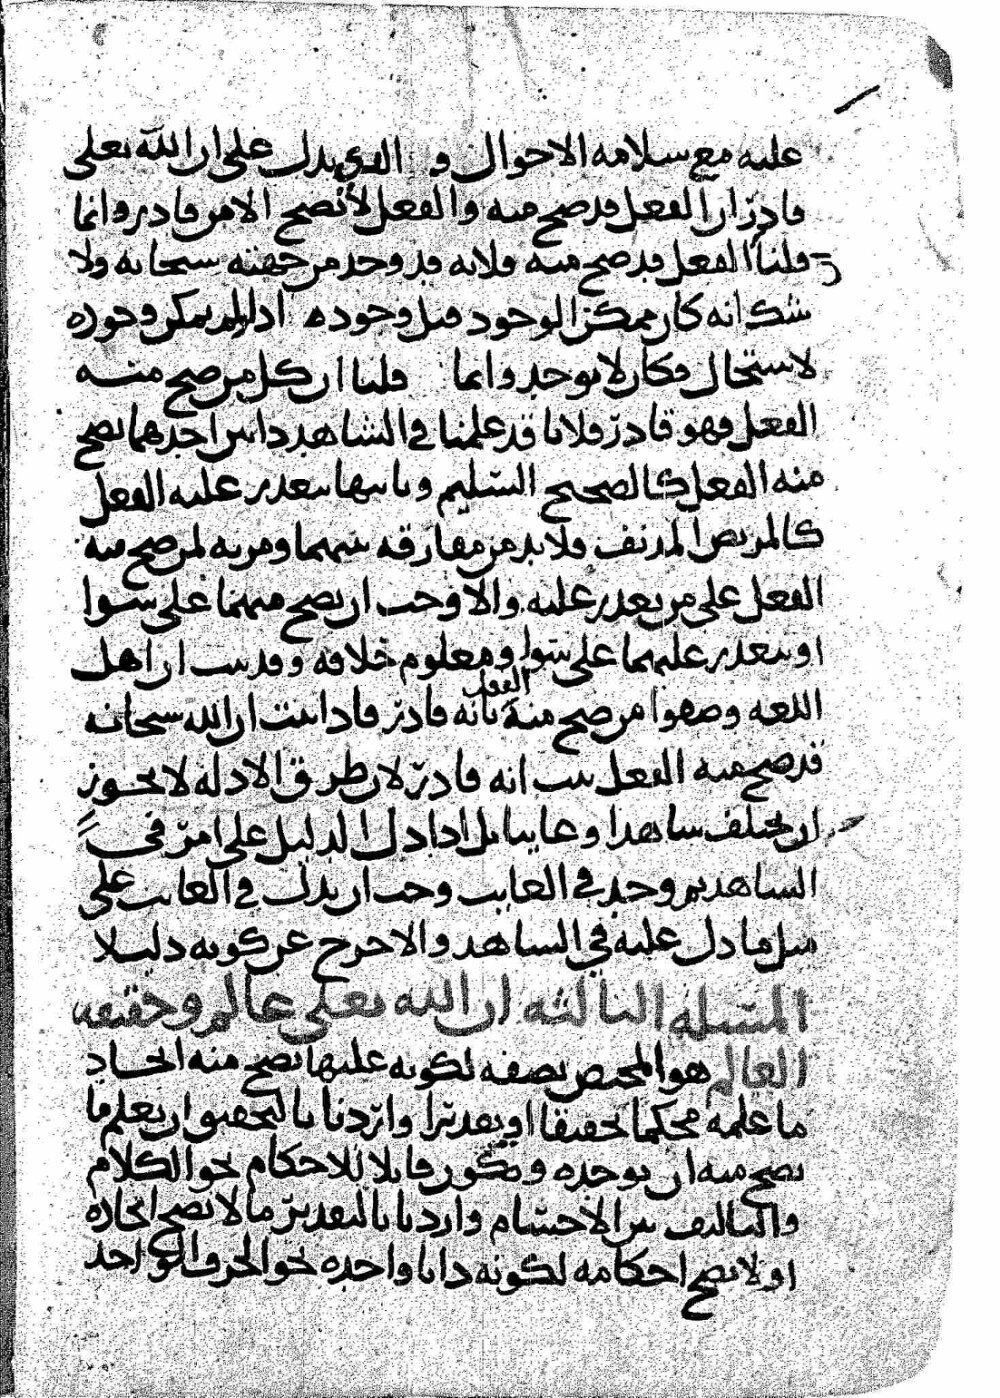 عليه مع سلامه الاحوال و الذي يدل على ان الله تعلى
قادر ان الفعل قد صح منه والفعل لا يصح الا من قادر وانما
قلنا ان الفعل قد صح منه فلانه قد وجد من جهته سبحانه ولا
شك انه كان ممكن الوجود قبل وجوده اذ لو لم يمكن وجوده
لاستحال فكان لا يوجد وانما قلنا ان كل من صح منه
الفعل فهو قادر فلانا قد علمنا في الشاهد ذاتين احدهما يصح
منه الفعل كالصحيح السليم وثانيها يتعذر عليه الفعل
كالمريض المدنف فلا بد من مفارقه بينهما ومزيه لمن صح منه
الفعل على من يعذر عليه والا وجب ان يصح منهما على سوا
او يتعذر عليهما على سوا ومعلوم خلافه وقد ثبت ان اهل
اللغه وصفوا من صح منه الفعل بانه قادر فاذا ثبت ان الله سبحانه
قد صح منه الفعل ثبت انه قادر لان طرق الادله لا يجوز
ان يختلف شاهدا وغايبا بل اذا دل الدليل على امر في
الشاهد ثم وجد في الغايب وجب ان يدل في الغايب على
مثل ما دل عليه في الشاهد والا خرج عن كونه دليلا
المسئله الثالثه ان الله تعلى عالم وحقيقه
العالم هو المختص بصفه لكونه عليها يصح منه ايجاد
ما علمه محكما تحقيقا او تقديرا واردنا بالتحقيق ان يعلم ما
يصح منه ان يوجده ويكون قابلا للاحكام نحو الكلام
والتاليف بين الاجسام واردنا بالتقدير ما لا يصح ايجاده
او لا يصح احكامه لكونه ذاتا واحده نحو الحرف الواحد